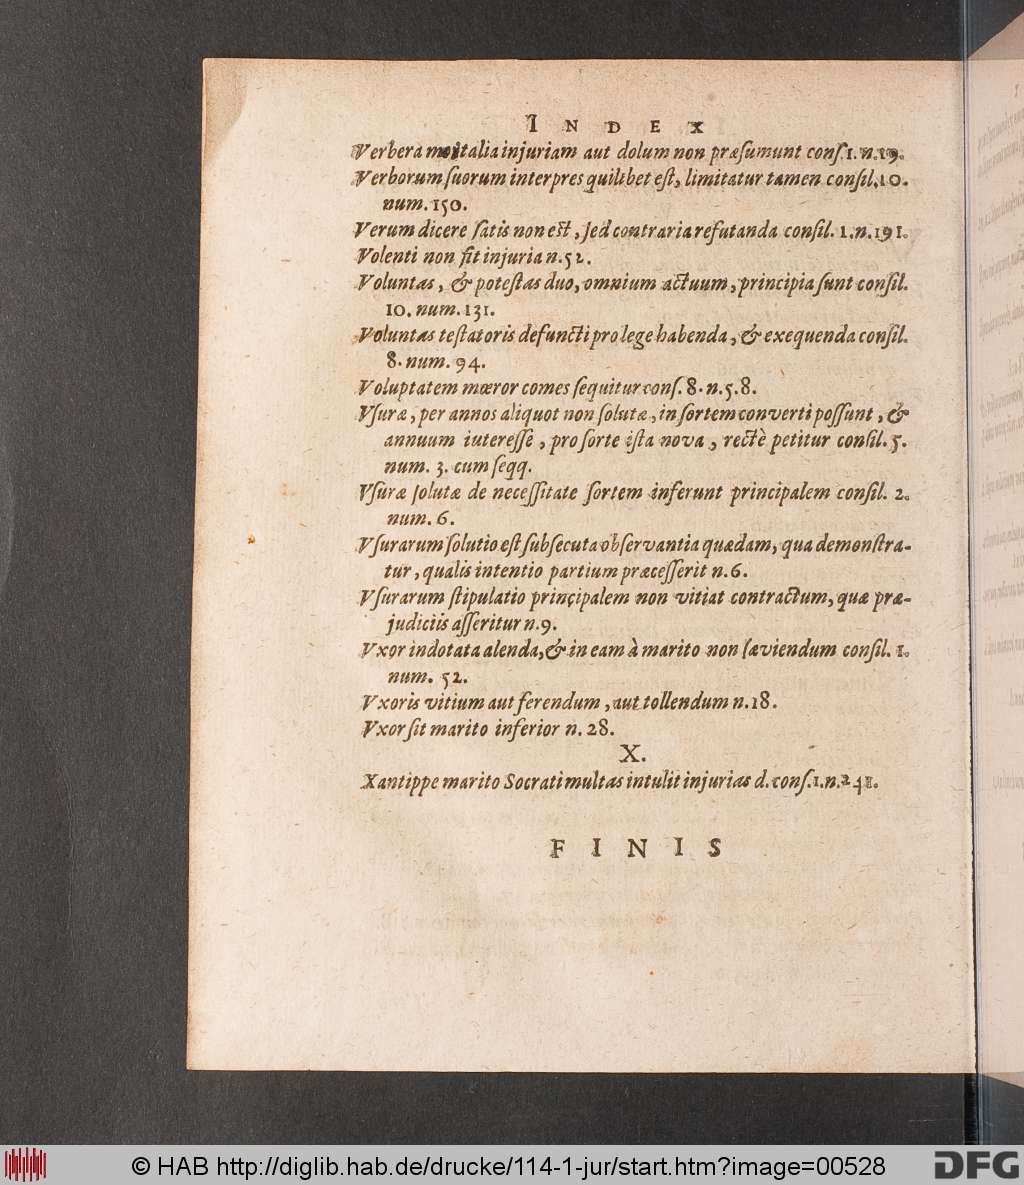 INDEX
Verbera mortalia injuriam aut dolum non præsumunt cons. 1. n. 19.
Verborum suorum interpres quilibet est, limitatur tamen consil. 10.
num. 150.
Verum dicere satis non est, sed contraria refutanda consil. 1. n. 191.
Volenti non fit injuria n. 52.
Voluntas, & potestas duo, omnium actuum, principia sunt consil.
10. num. 131.
Voluntas testatoris defuncti pro lege habenda, & exequenda consil.
8. num. 94.
Voluptatem mœror comes sequitur cons. 8. n. 5. 8.
Vsuræ, per annos aliquot non solutæ, in sortem converti possunt, &
annuum iuteresse, pro sorte ista nova, rectè petitur consil. 5.
num. 3. cum seqq.
Vsuræ solutæ de necessitate sortem inferunt principalem consil. 2.
num. 6.
Vsurarum solutio est subsecuta observantia quædam, qua demonstra-
tur, qualis intentio partium præcesserit n. 6.
Vsurarum stipulatio principalem non vitiat contractum, quæ præ-
judiciis asseritur n. 9.
Vxor indotata alenda, & in eam à marito non sæviendum consil. 1.
num. 52.
Vxoris vitium aut ferendum, aut tollendum n. 18.
Vxor sit marito inferior n. 28.
X.
Xantippe marito Socrati multas intulit injurias d. cons. 1. n. 241.
FINIS
© HAB http://diglib.hab.de/drucke/114-1-jur/start.htm?image=00528
DFG